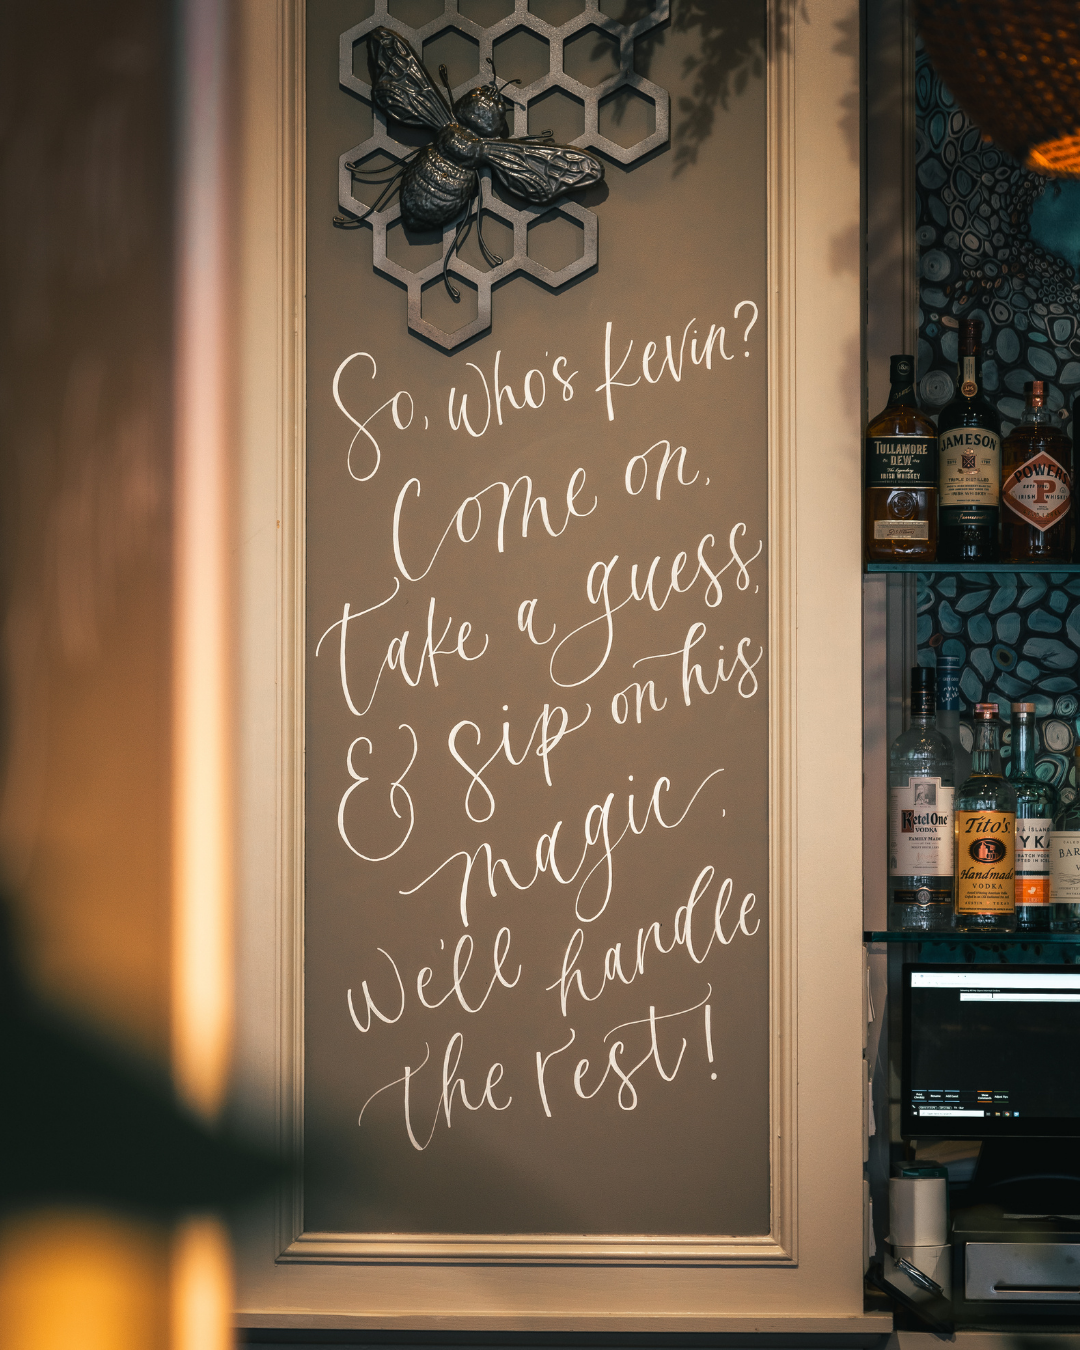 So, who's Kevin?
Come on,
take a guess,
& sip on his
magic.
We'll handle
the rest!
TULLAMORE
D.E.W.
The Legendary
IRISH WHISKEY
JAMESON
TRIPLE DISTILLED
IRISH WHISKEY
POWERS
P
IRISH WHISKEY
Ketel One
VODKA
Tito's
Handmade
VODKA
AUSTIN TEXAS
YKA
BAR